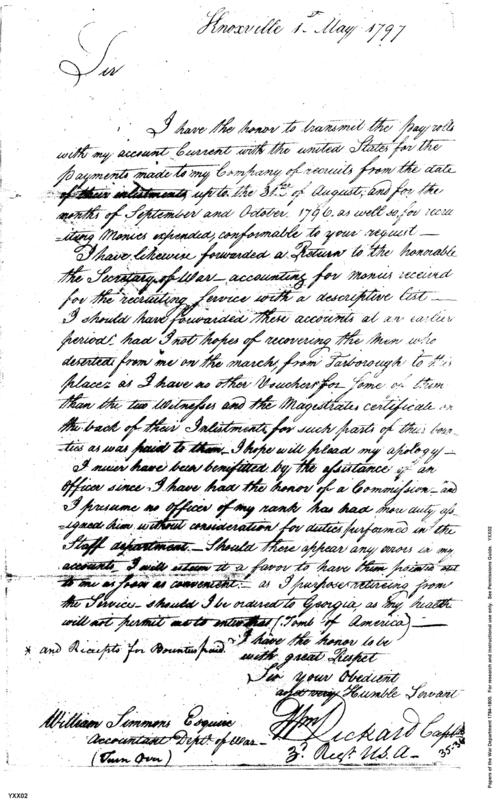 Knoxville 1st May 1797
Sir
I have the honor to transmit the Pay rolls
with my account Current with the united States for the
payments made to my Company of recruits from the date
of their inlistments up to the 31st of August, and for the
months of September and October 1796. as well as for recru
iting Monies expended, conformable to your request —
I have likewise forwarded a Return to the honorable
the Secretary of War accounting for monies received
for the recruiting Service with a descriptive list —
I should have forwarded these accounts at an earlier
period, had I not hopes of recovering the men who
deserted from me on the march, from Tarborough to this
place as I have no other Vouchers for some of them
than the two Witnesses and the Magistrates certificate on
the back of their Inlistments for such parts of their boun
ties as was paid to them. I hope will plead my apology —
I never have been benefitted by the assistance of an
Officer since I have had the honor of a Commission — and
I presume no officer of my rank has had more duty as
signed him without consideration for duties performed in the
Staff department — Should there appear any errors in my
accounts I will esteem it a favor to have them pointed out
to me as soon as convenient — as I purpose retireing from
the Service should I be ordered to Georgia, as my health
will not permit me to enter that (Tomb of America) —
* and Receipts for Bounties paid
I have the honor to be
with great Respect
Sir your Obedient
and very Humble Servant
Wm Rickard Capt
3d Regt U.S.A —
William Simmons Esquire
Accountant Dept. of War —
(Turn Over)
YXX02
Papers of the War Department 1784-1800. For research and instructional use only. See Permissions Guide. YXX02